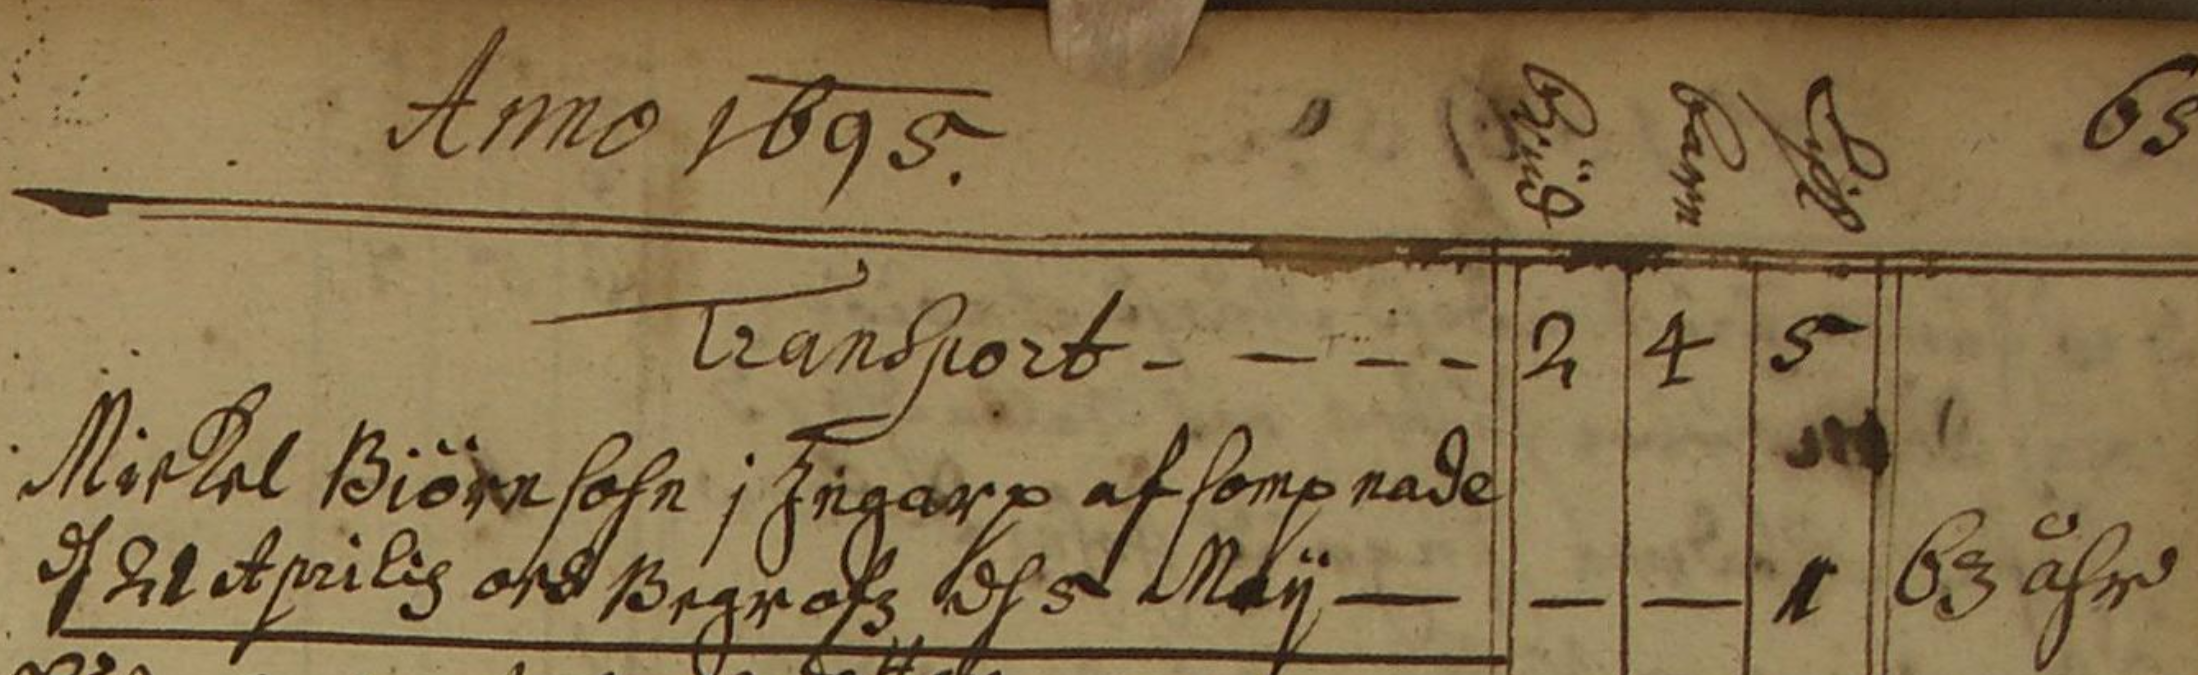 Anno 1695. Brud barn Lijk 65
Transport - - - - 2 4 5
Mickel Biörnsohn j Ingarp afsompnade
d 21 Aprilis och Begrofs dh 5 Maij — — — 1 63 åhr